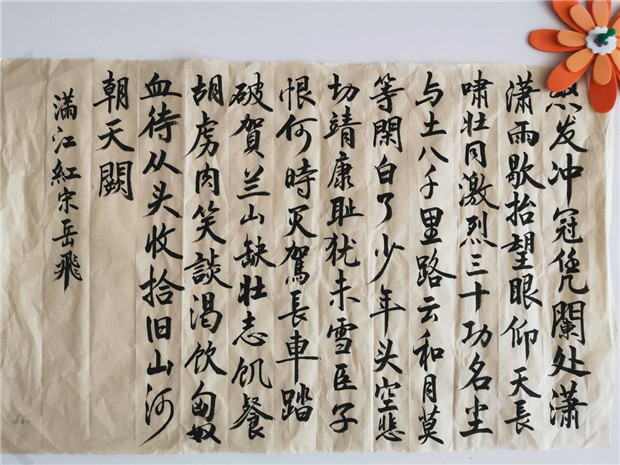 发冲冠凭闌处潇
潇雨歇抬望眼仰天長
嘯壮怀激烈三十功名尘
与土八千里路云和月莫
等閑白了少年头空悲
切靖康耻犹未雪臣子
恨何時灭駕長車踏
破賀兰山缺壮志饥餐
胡虏肉笑談渴饮匈奴
血待从头收拾旧山河
朝天闕
满江紅宋岳飛